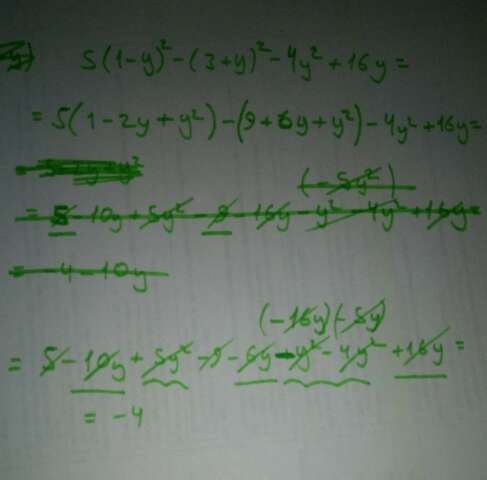 5(1-y)² - (3+y)² - 4y² + 16y =
= 5(1 - 2y + y²) - (9 + 6y + y²) - 4y² + 16y =
(-5y²)
= 5 - 10y + 5y² - 9 - 16y - y² - 4y² + 16y =
= -4 - 10y
(-16y)(-5y)
= 5 - 10y + 5y² - 9 - 6y - y² - 4y² + 16y =
= -4